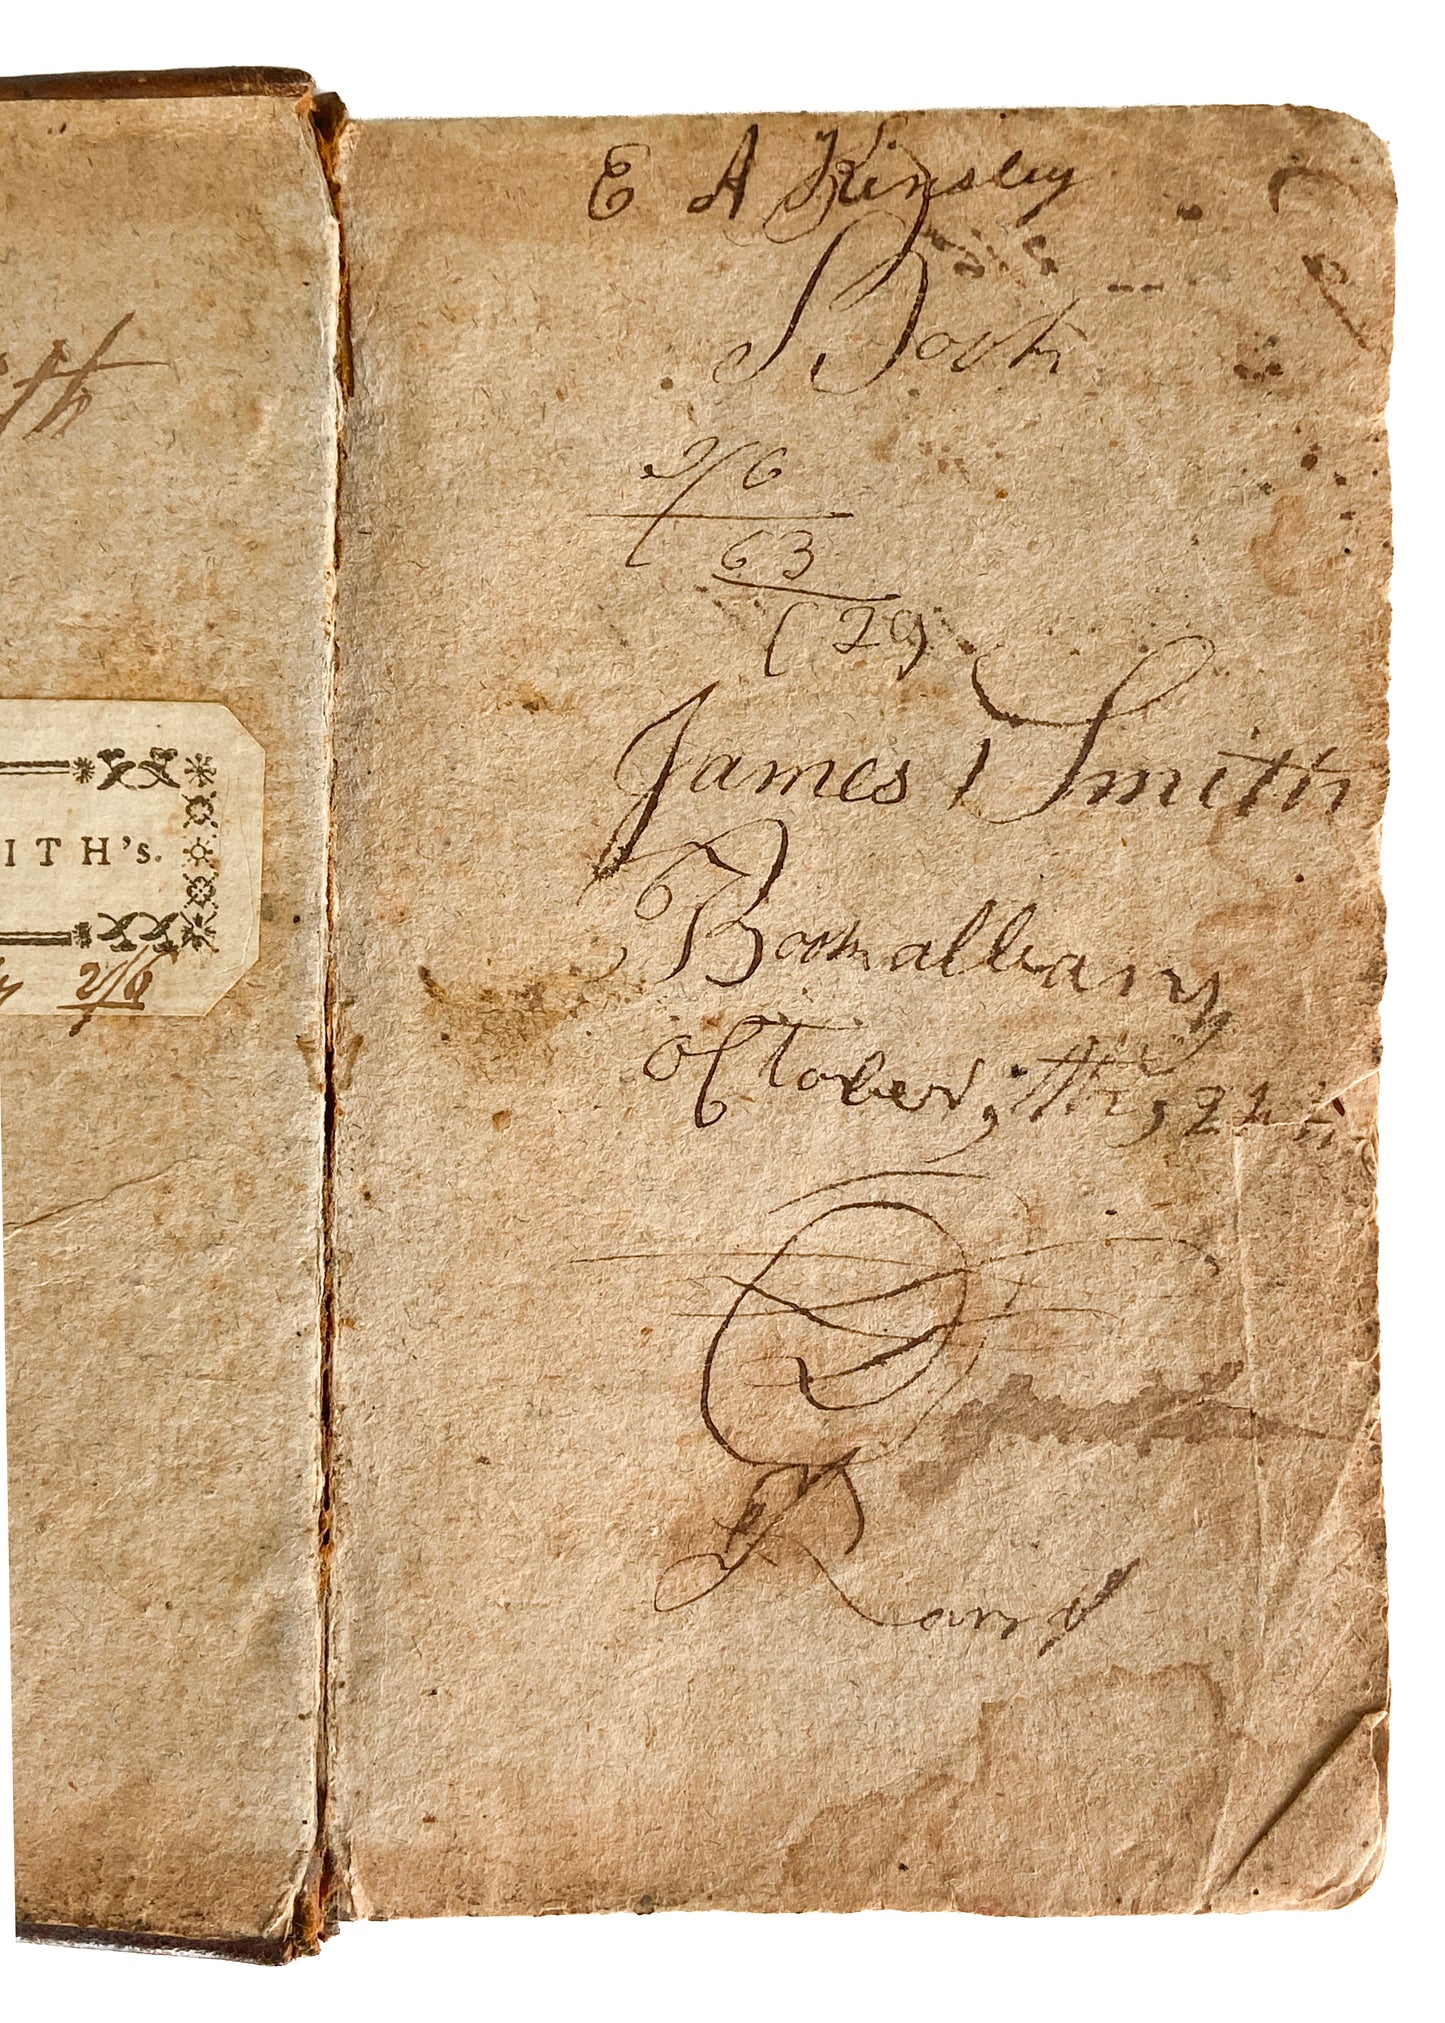 ITH's.
2/6
E A Kinsley
Book
2/6
63
(29)
James Smith
Book albany
october, the, 22
Rany